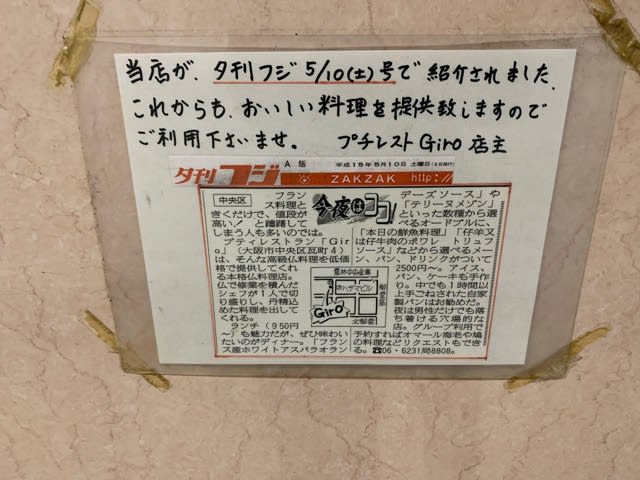 当店が、夕刊フジ 5/10(土)号で紹介されました。
これからも、おいしい料理を提供致しますので
ご利用下さいませ。 プチレストGiro 店主
夕刊フジ A版 平成15年5月10日 土曜日
ZAKZAK http://
中央区
今夜はココ!
フラン
ス料理と
きくだけで、値段が
高い!と躊躇して
しまう人も多いのでは。
プティレストラン「Gir
o」(大阪市中央区瓦町4)
は、そんな高級仏料理を低価
格で提供してくれ
る本格仏料理店。
仏で修業を積んだ
シェフが1人で切
り盛りし、丹精込
めた料理を出して
くれる。
ランチ(950円
〜)も魅力だが、ぜひ味わい
たいのがディナー。「フラン
ス産ホワイトアスパラオラン
デーズソース」や
「テリーヌメゾン」
といった数種から選
べるオードブルに、
「本日の鮮魚料理」「仔羊又
は仔牛肉のポワレ トリュフ
ソース」などから選べるメー
ン、パン、ドリンクがついて
2500円〜。アイス、
パン、ケーキも手作
り。中でも1時間以
上手ごねされた自家
製パンはお勧めだ。
夜は男性だけでも落
ち着ける穴場的な
店。グループ利用で
予約すればオマール海老や鳩
の料理などリクエストもでき
る。☎06・6231局8808。
Giro